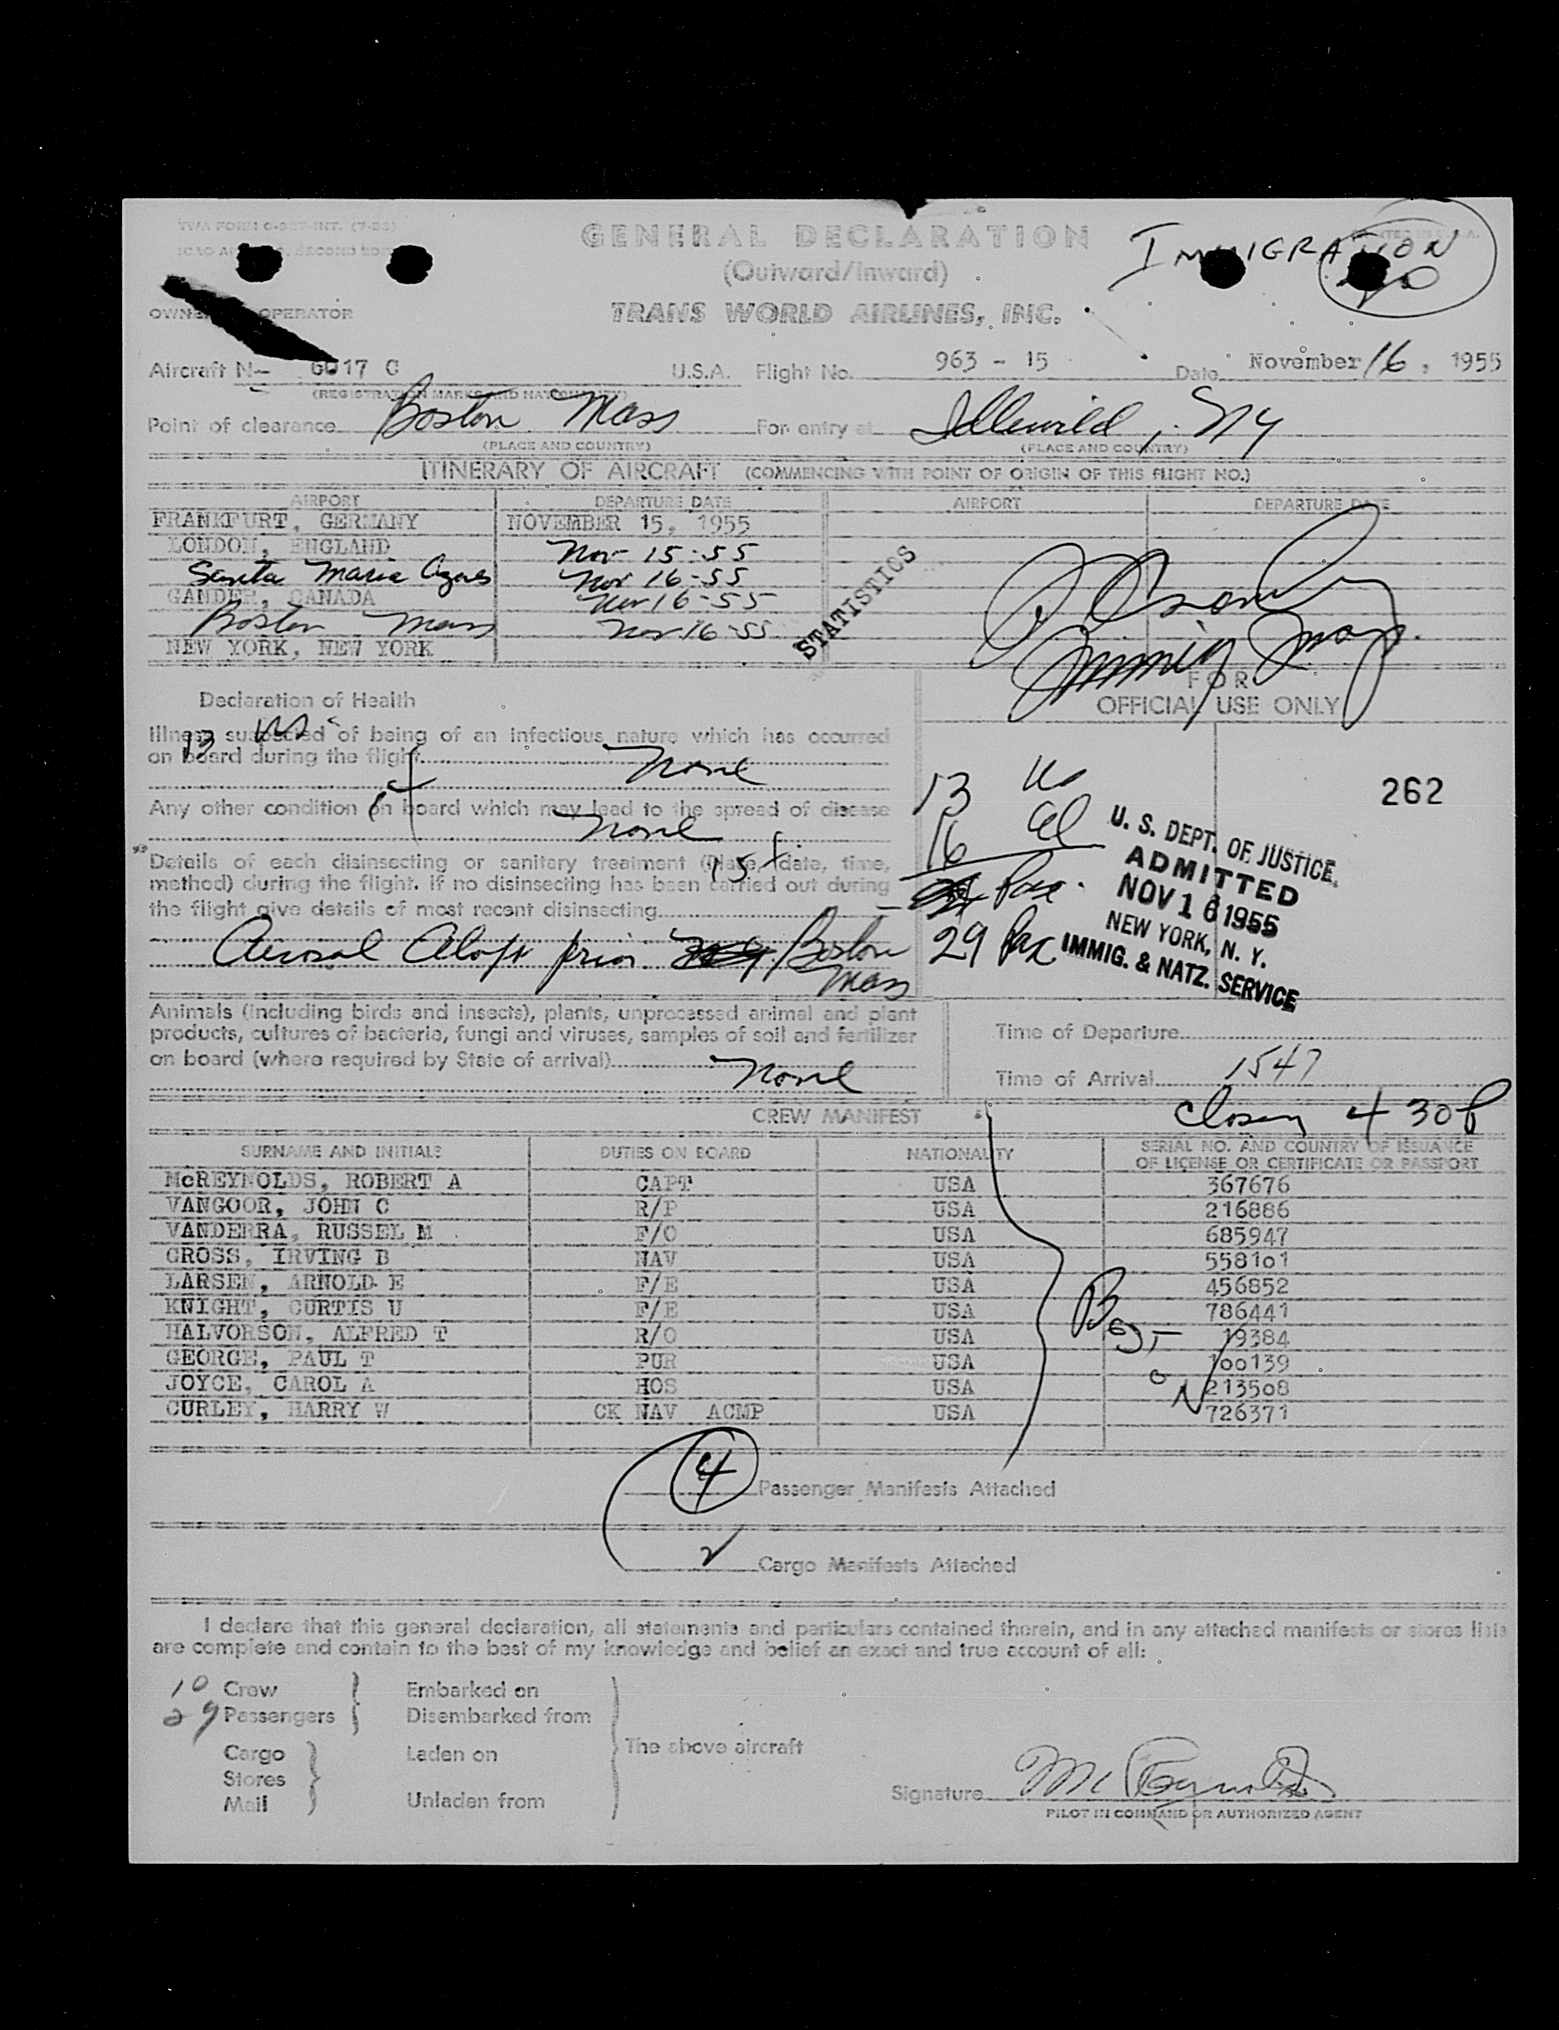 TWA FORM
GENERAL DECLARATION
IMMIGRATION
(Outward/Inward)
OPERATOR
TRANS WORLD AIRLINES, INC.
Aircraft N- 6017 C U.S.A. Flight No. 963 - 15 Date November 16, 1955
(REGISTRATION MARKS AND NATIONALITY)
Point of clearance Boston Mass For entry at Idlewild, NY
(PLACE AND COUNTRY) (PLACE AND COUNTRY)
ITINERARY OF AIRCRAFT (COMMENCING WITH POINT OF ORIGIN OF THIS FLIGHT NO.)
AIRPORT DEPARTURE DATE AIRPORT DEPARTURE DATE
FRANKFURT, GERMANY NOVEMBER 15, 1955
LONDON, ENGLAND Nov 15-55
Santa Maria Azores Nov 16-55
GANDER, CANADA Nov 16-55
Boston Mass Nov 16-55
NEW YORK, NEW YORK
STATISTICS
Immig
FOR
OFFICIAL USE ONLY
Declaration of Health
Illness suspected of being of an infectious nature which has occurred
on board during the flight None
Any other condition on board which may lead to the spread of disease
None
Details of each disinsecting or sanitary treatment (place, date, time,
method) during the flight. If no disinsecting has been carried out during
the flight give details of most recent disinsecting
Aerosol Aloft prior Boston
Mass
13
15
13 Us
16 al
Pax.
29 Pax
262
U. S. DEPT. OF JUSTICE
ADMITTED
NOV 16 1955
NEW YORK, N. Y.
IMMIG. & NATZ. SERVICE
Animals (including birds and insects), plants, unprocessed animal and plant
products, cultures of bacteria, fungi and viruses, samples of soil and fertilizer
on board (where required by State of arrival) None
Time of Departure
Time of Arrival 1547
CREW MANIFEST
430p
SURNAME AND INITIALS DUTIES ON BOARD NATIONALITY SERIAL NO. AND COUNTRY OF ISSUANCE
OF LICENSE OR CERTIFICATE OR PASSPORT
McREYNOLDS, ROBERT A CAPT USA 367676
VANGOOR, JOHN C R/P USA 216886
VANDERRA, RUSSEL M F/O USA 685947
GROSS, IRVING B NAV USA 558101
LARSEN, ARNOLD E F/E USA 456852
KNIGHT, CURTIS U F/E USA 786441
HALVORSON, ALFRED T R/O USA 19384
GEORGE, PAUL T PUR USA 100139
JOYCE, CAROL A HOS USA 213508
CURLEY, HARRY W CK NAV ACMP USA 726371
4 Passenger Manifests Attached
Cargo Manifests Attached
I declare that this general declaration, all statements and particulars contained therein, and in any attached manifests or stores lists
are complete and contain to the best of my knowledge and belief an exact and true account of all:
10 Crew Embarked on
29 Passengers Disembarked from
The above aircraft
Cargo Laden on
Stores
Mail Unladen from
Signature McReynolds
PILOT IN COMMAND OR AUTHORIZED AGENT